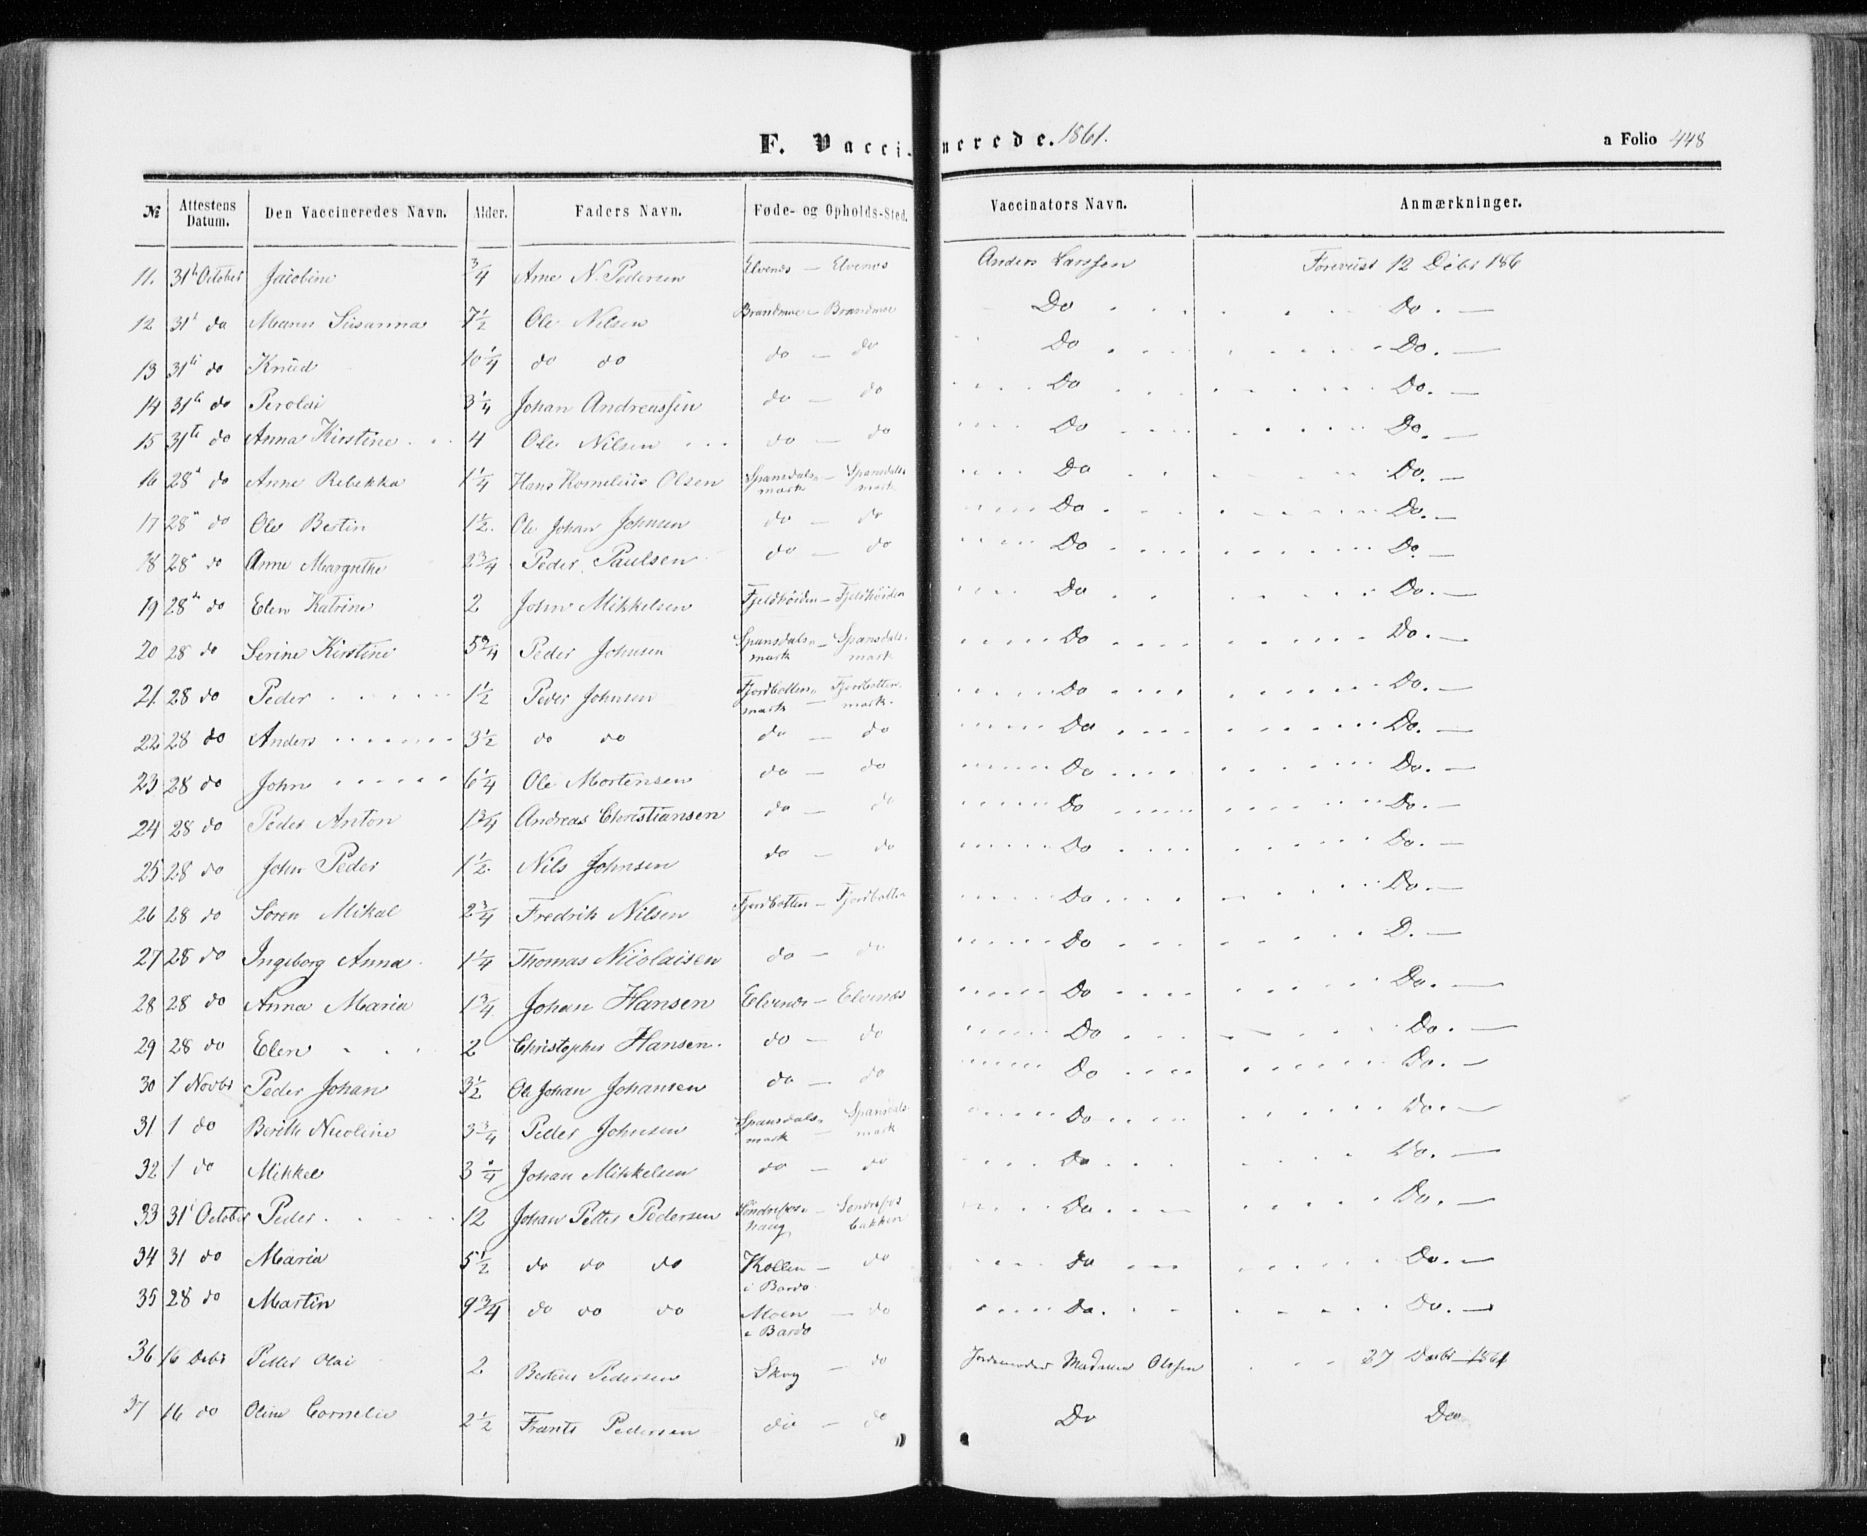 F. Vaccinerede. 1861.
a Folio 448
№ Attestens Datum. Den Vaccineredes Navn. Alder. Faders Navn. Føde- og Opholds-Sted. Vaccinators Navn. Anmærkninger.
11. 31te October Jacobine 3/4 Arne N. Pedersen Elvenes — Elvenes Anders Larssen Foreviist 12 Debr 186
12 31t do Maren Susanna 7 1/2 Ole Nilsen Brandmoe — Brandmoe Do Do. —
13 31te do Knud 10 1/4 do do do — do Do Do. —
14 31te do Perolai 3 1/4 Johan Andreassen do — do Do Do. —
15 31te do Anna Kirstine 4 Ole Nilsen do — do Do Do. —
16 28de do Anne Rebekka 1 1/4 Hans Kornelius Olsen Spansdals- mark — Spansdals- mark Do Do. —
17 28de do Ole Bertin 1 1/2. Ole Johan Johnsen do — do Do Do. —
18 28de do Anne Margrethe 2 3/4 Peder Paulsen do — do Do Do —
19 28de do Elen Katrine 2 John Mikkelsen Fjeldhøiden — Fjeldhøiden Do Do. —
20 28 do Serine Kirstine 5 3/4 Peder Johnsen Spansdals- mark — Spansdals- mark Do Do. —
21 28 do Peder 1 1/2 Peder Johnsen Fjordbotten- mark — Fjordbotten- mark. Do Do. —
22 28 do Anders 3 1/2 do do do — do Do Do. —
23 28 do John 6 1/4 Ole Mortensen do — do Do Do. —
24 28 do Peder Anton 1 3/4 Andreas Christiansen do — do Do Do. —
25 28 do John Peder 1 1/2. Nils Johnsen do — do Do Do. —
26 28 do Søren Mikal 2 3/4 Fredrik Nilsen Fjordbotten — Fjordbotten Do Do. —
27 28 do Ingeborg Anna 1 1/4 Thomas Nicolaisen do — do Do D. —
28 28 do Anna Maria 1 3/4 Johan Hansen Elvenes — Elvenes Do Do. —
29 28 do Elen 2 Christopher Hansen. do — do Do Do. —
30 1 Novbr Peder Johan 3 1/2 Ole Johan Johansen do — do Do Do. —
31 1 do Berith Nicoline 3 3/4 Peder Johnsen Spansdals- mark — Spansdals- mark Do Do. —
32 1 do Mikkel 3 1/4 Johan Mikkelsen do — do Do Do. —
33 31t October Peder 12 Johan Petter Pedersen haug — bakken Do Do. —
34 31 do Maria 5 1/2 do do do Kollen i Bardo — do Do Do. —
35 28 do Martin 9 3/4 do do do Moen i Bardo — do Do. Do. —
36 16 Debr Petter Olai 2 Pedersen Skog — do Jordemoder Madame Olssen 27 Debr 1861
37 16 do Oline Cornelie 2 1/2 Frants Pedersen do — do Do Do